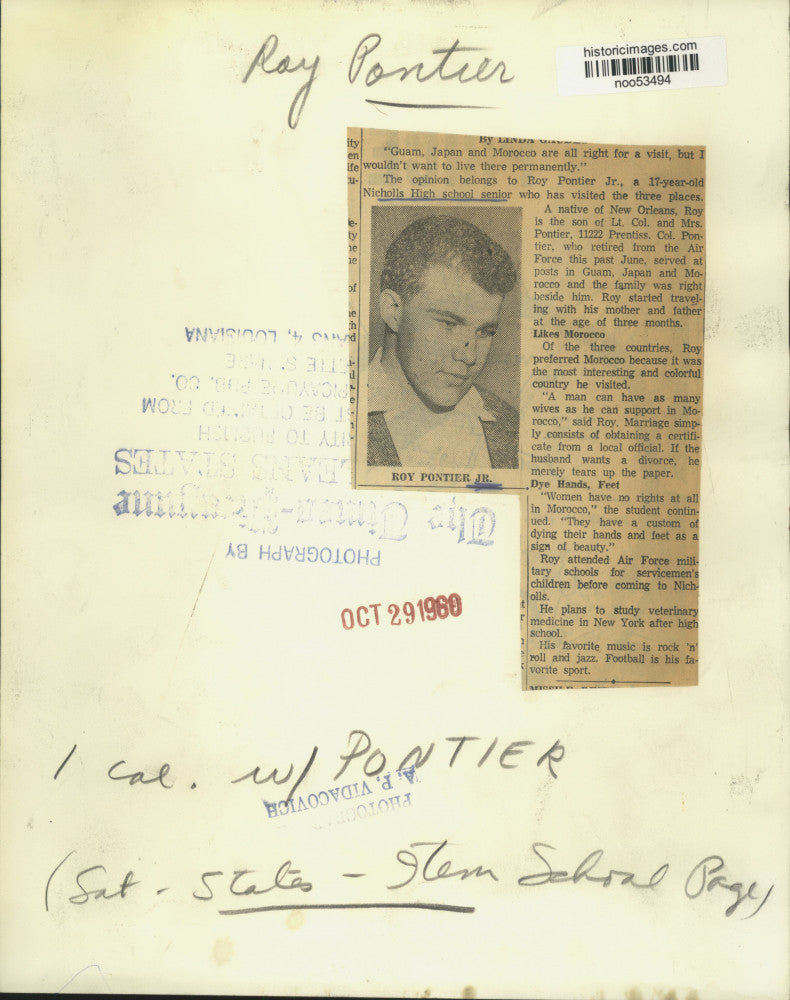 Roy Pontier
historicimages.com
noo53494
ity
en
ife
tu-
By LINDA
"Guam, Japan and Morocco are all right for a visit, but I
wouldn't want to live there permanently."
The opinion belongs to Roy Pontier Jr., a 17-year-old
Nicholls High school senior who has visited the three places.
A native of New Orleans, Roy
is the son of Lt. Col. and Mrs.
Pontier, 11222 Prentiss. Col. Pon-
tier, who retired from the Air
Force this past June, served at
posts in Guam, Japan and Mo-
rocco and the family was right
beside him. Roy started travel-
ing with his mother and father
at the age of three months.
Likes Morocco
Of the three countries, Roy
preferred Morocco because it was
the most interesting and colorful
country he visited.
"A man can have as many
wives as he can support in Mo-
rocco," said Roy. Marriage simp-
ly consists of obtaining a certifi-
cate from a local official. If the
husband wants a divorce, he
merely tears up the paper.
Dye Hands, Feet
"Women have no rights at all
in Morocco," the student contin-
ued. "They have a custom of
dying their hands and feet as a
sign of beauty."
Roy attended Air Force mili-
tary schools for servicemen's
children before coming to Nich-
olls.
He plans to study veterinary
medicine in New York after high
school.
His favorite music is rock 'n'
roll and jazz. Football is his fa-
vorite sport.
ROY PONTIER JR.
PHOTOGRAPH BY
The Times-Picayune
LEANS STATES
ITY TO PUBLISH
ST BE OBTAINED FROM
PICAYUNE PUB. CO.
ANS 4, LOUISIANA
OCT 29 1960
1 Col. w/ PONTIER
A. P. VIDACOVICH
(Sat - States - Item School Page)